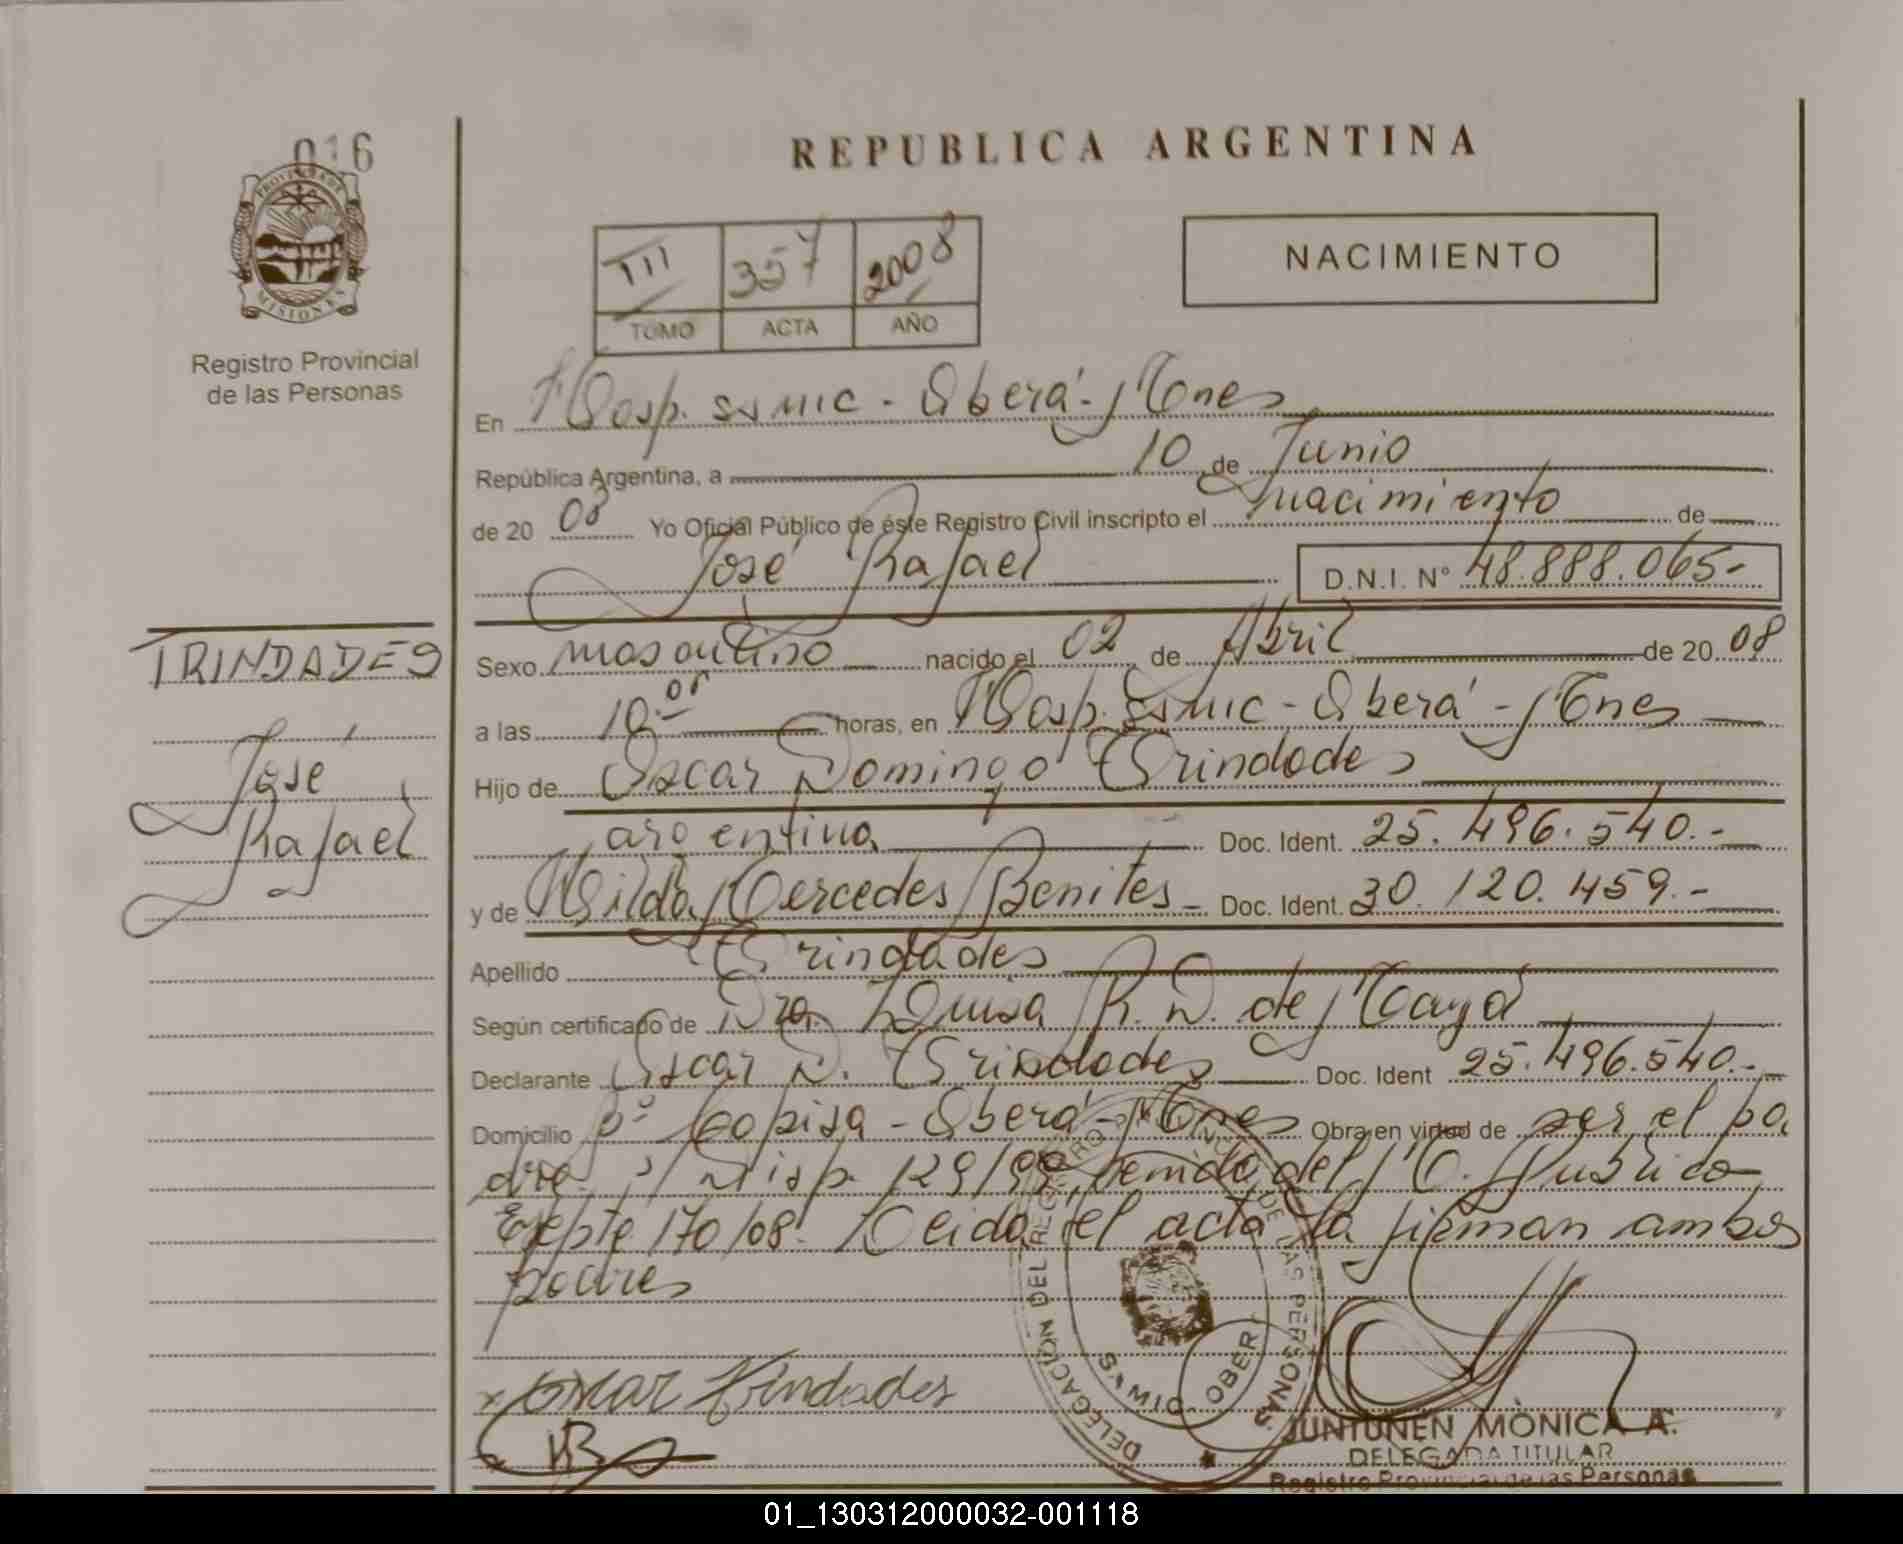 016
PROVINCIA DE
MISIONES
Registro Provincial
de las Personas
REPUBLICA ARGENTINA
III 357 2008
TOMO ACTA AÑO
NACIMIENTO
En Hosp. SSMIC - Oberá - Mnes
República Argentina, a 10 de Junio
de 20 08 Yo Oficial Público de éste Registro Civil inscripto el nacimiento de
José Rafael D.N.I. Nº 48.888.065-
TRINDADES
José
Rafael
Sexo masculino nacido el 02 de Abril de 20 08
a las horas, en Hosp. SSMIC - Oberá - Mnes
Hijo de Oscar Domingo Trindades
argentina Doc. Ident. 25.496.540.-
y de Hilda Mercedes Benites - Doc. Ident. 30.120.459.-
Apellido Trindades
Según certificado de Dra. Luisa R. D. de
Declarante Oscar D. Trindades Doc. Ident 25.496.540.-
Domicilio Bº Copisa - Oberá - Mnes Obra en virtud de ser el pa
dre s/ Disp. 129/99 del M. Publico
Expte 170/08. Leida el acta la firman ambos
padres
Oscar Trindades
HB
DELEGACION DEL REGISTRO PROVINCIAL DE LAS PERSONAS
OBERA
JUNTUNEN MÒNICA A.
DELEGADA TITULAR
Registro Provincial de las Personas
01_130312000032-001118